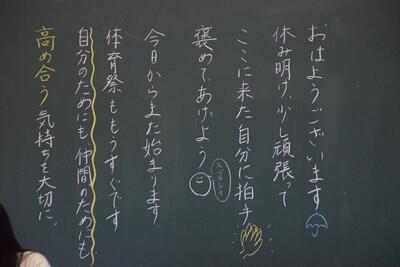 おはようございます
休み明け、少し頑張って
ここに来た自分に拍手
褒めてあげよう
スバラシイ
今日からまた始まります
体育祭ももうすぐです
自分のためにも、仲間のためにも
高め合う気持ちを大切に。